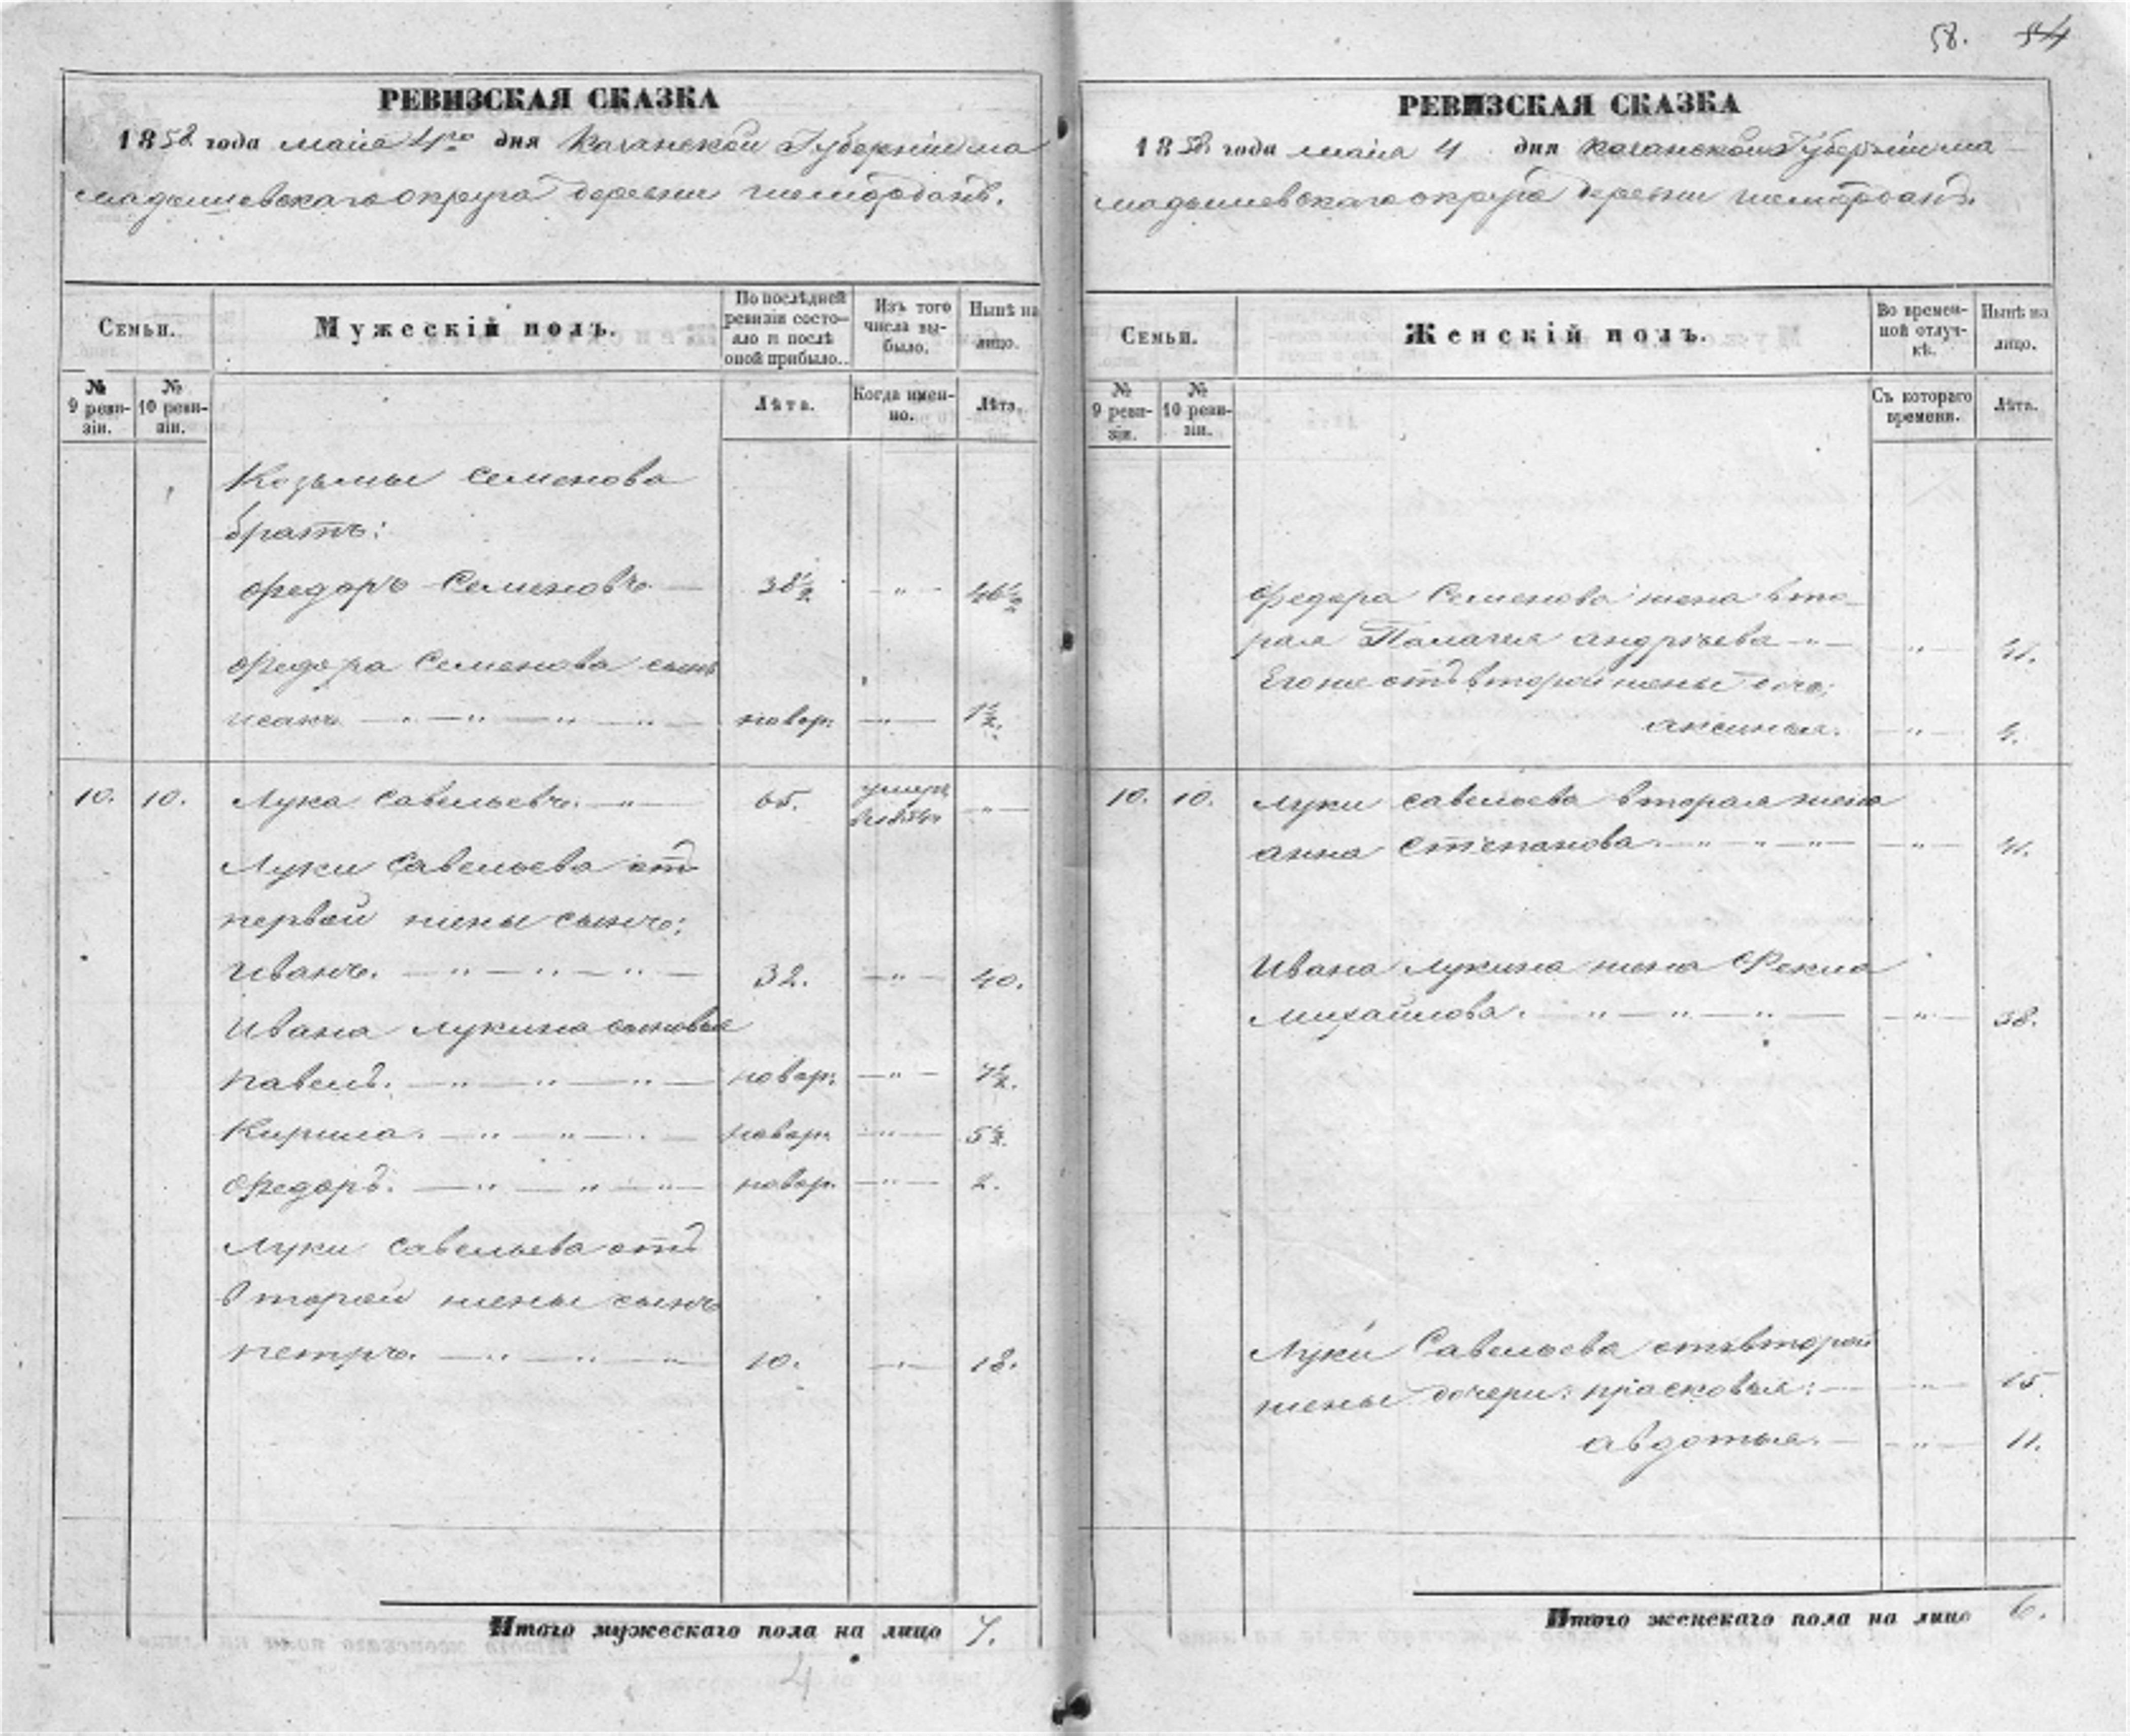 58. 54
РЕВИЗСКАЯ СКАЗКА
1858 года маiя 4го дня Казанской Губернiи ма
мадышевскаго округа деревни шемордановъ.
Семьи.
Мужескiй полъ.
По послѣдней ревизiи состояло и послѣ оной прибыло.
Изъ того числа выбыло.
Нынѣ на лицо.
№ 9 ревизiи.
№ 10 ревизiи.
Лѣта.
Когда именно.
Лѣта.
Козьмы Семенова
братъ:
Федоръ Семеновъ — 38½ — " — 46½
Федора Семенова сынъ
исакъ — " — " — " — " — новор. — " — 1½.
10. 10. Лука Савельевъ. — " — 65. умеръ — " —
Луки Савельева отъ
первой жены сынъ:
Иванъ. — " — " — " — 32. — " — 40.
Ивана Лукина сыновья
павелъ. — " — " — " — новор. — " — 7½.
Кирила. — " — " — " — новор. — " — 5½.
Федоръ. — " — " — " — новор. — " — 2.
Луки Савельева отъ
второй жены сынъ
петръ. — " — " — " — 10. — " — 18.
Итого мужескаго пола на лицо 7.
4
РЕВИЗСКАЯ СКАЗКА
1858 года маiя 4 дня Казанской Губернiи ма
мадышевскаго округа деревни шемордановъ.
Семьи.
Женскiй полъ.
Во временной отлучкѣ.
Нынѣ на лицо.
№ 9 ревизiи.
№ 10 ревизiи.
Съ котораго времени.
Лѣта.
Федора Семенова жена вто-
рая Палагея андрѣева — " — " —
Его же отъ второй жены дочь:
аксинья. — " —
10. 10. Луки савельева вторая жена
анна Степанова. — " — " — " — " —
Ивана Лукина жена Фекла
Михайлова. — " — " — " — " — 38.
Луки Савельева отъ второй
жены дочери: прасковья: — " — 15.
авдотья. — " — 11.
Итого женскаго пола на лицо 6.